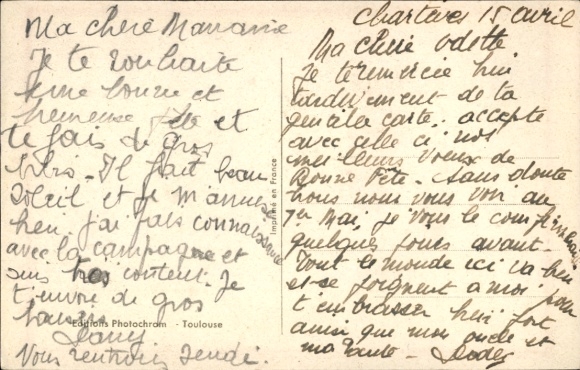 Ma chère Maman
Je te souhaite
une bonne et
heureuse fête et
te fais de gros
bibis - Il fait beau
soleil et je m'amuse
bien. j'ai fais connaissance
avec la campagne et
suis très content. Je
t'envoie de gros
baisers
Dany
Vous rentrons jeudi.
Editions Photochrom - Toulouse
Imprimé en France
Chartres 15 avril
Ma chère Odette
Je te remercie bien
tardivement de ta
gentille carte. accepte
avec celle ci nos
meilleurs voeux de
Bonne Fête - Sans doute
nous nous vous voir au
1er Mai, je vous le confirmerai
quelques jours avant.
Tout le monde ici va bien
et se joignent à moi pour
t'embrasser bien fort
ainsi que mon oncle et
ma tante -